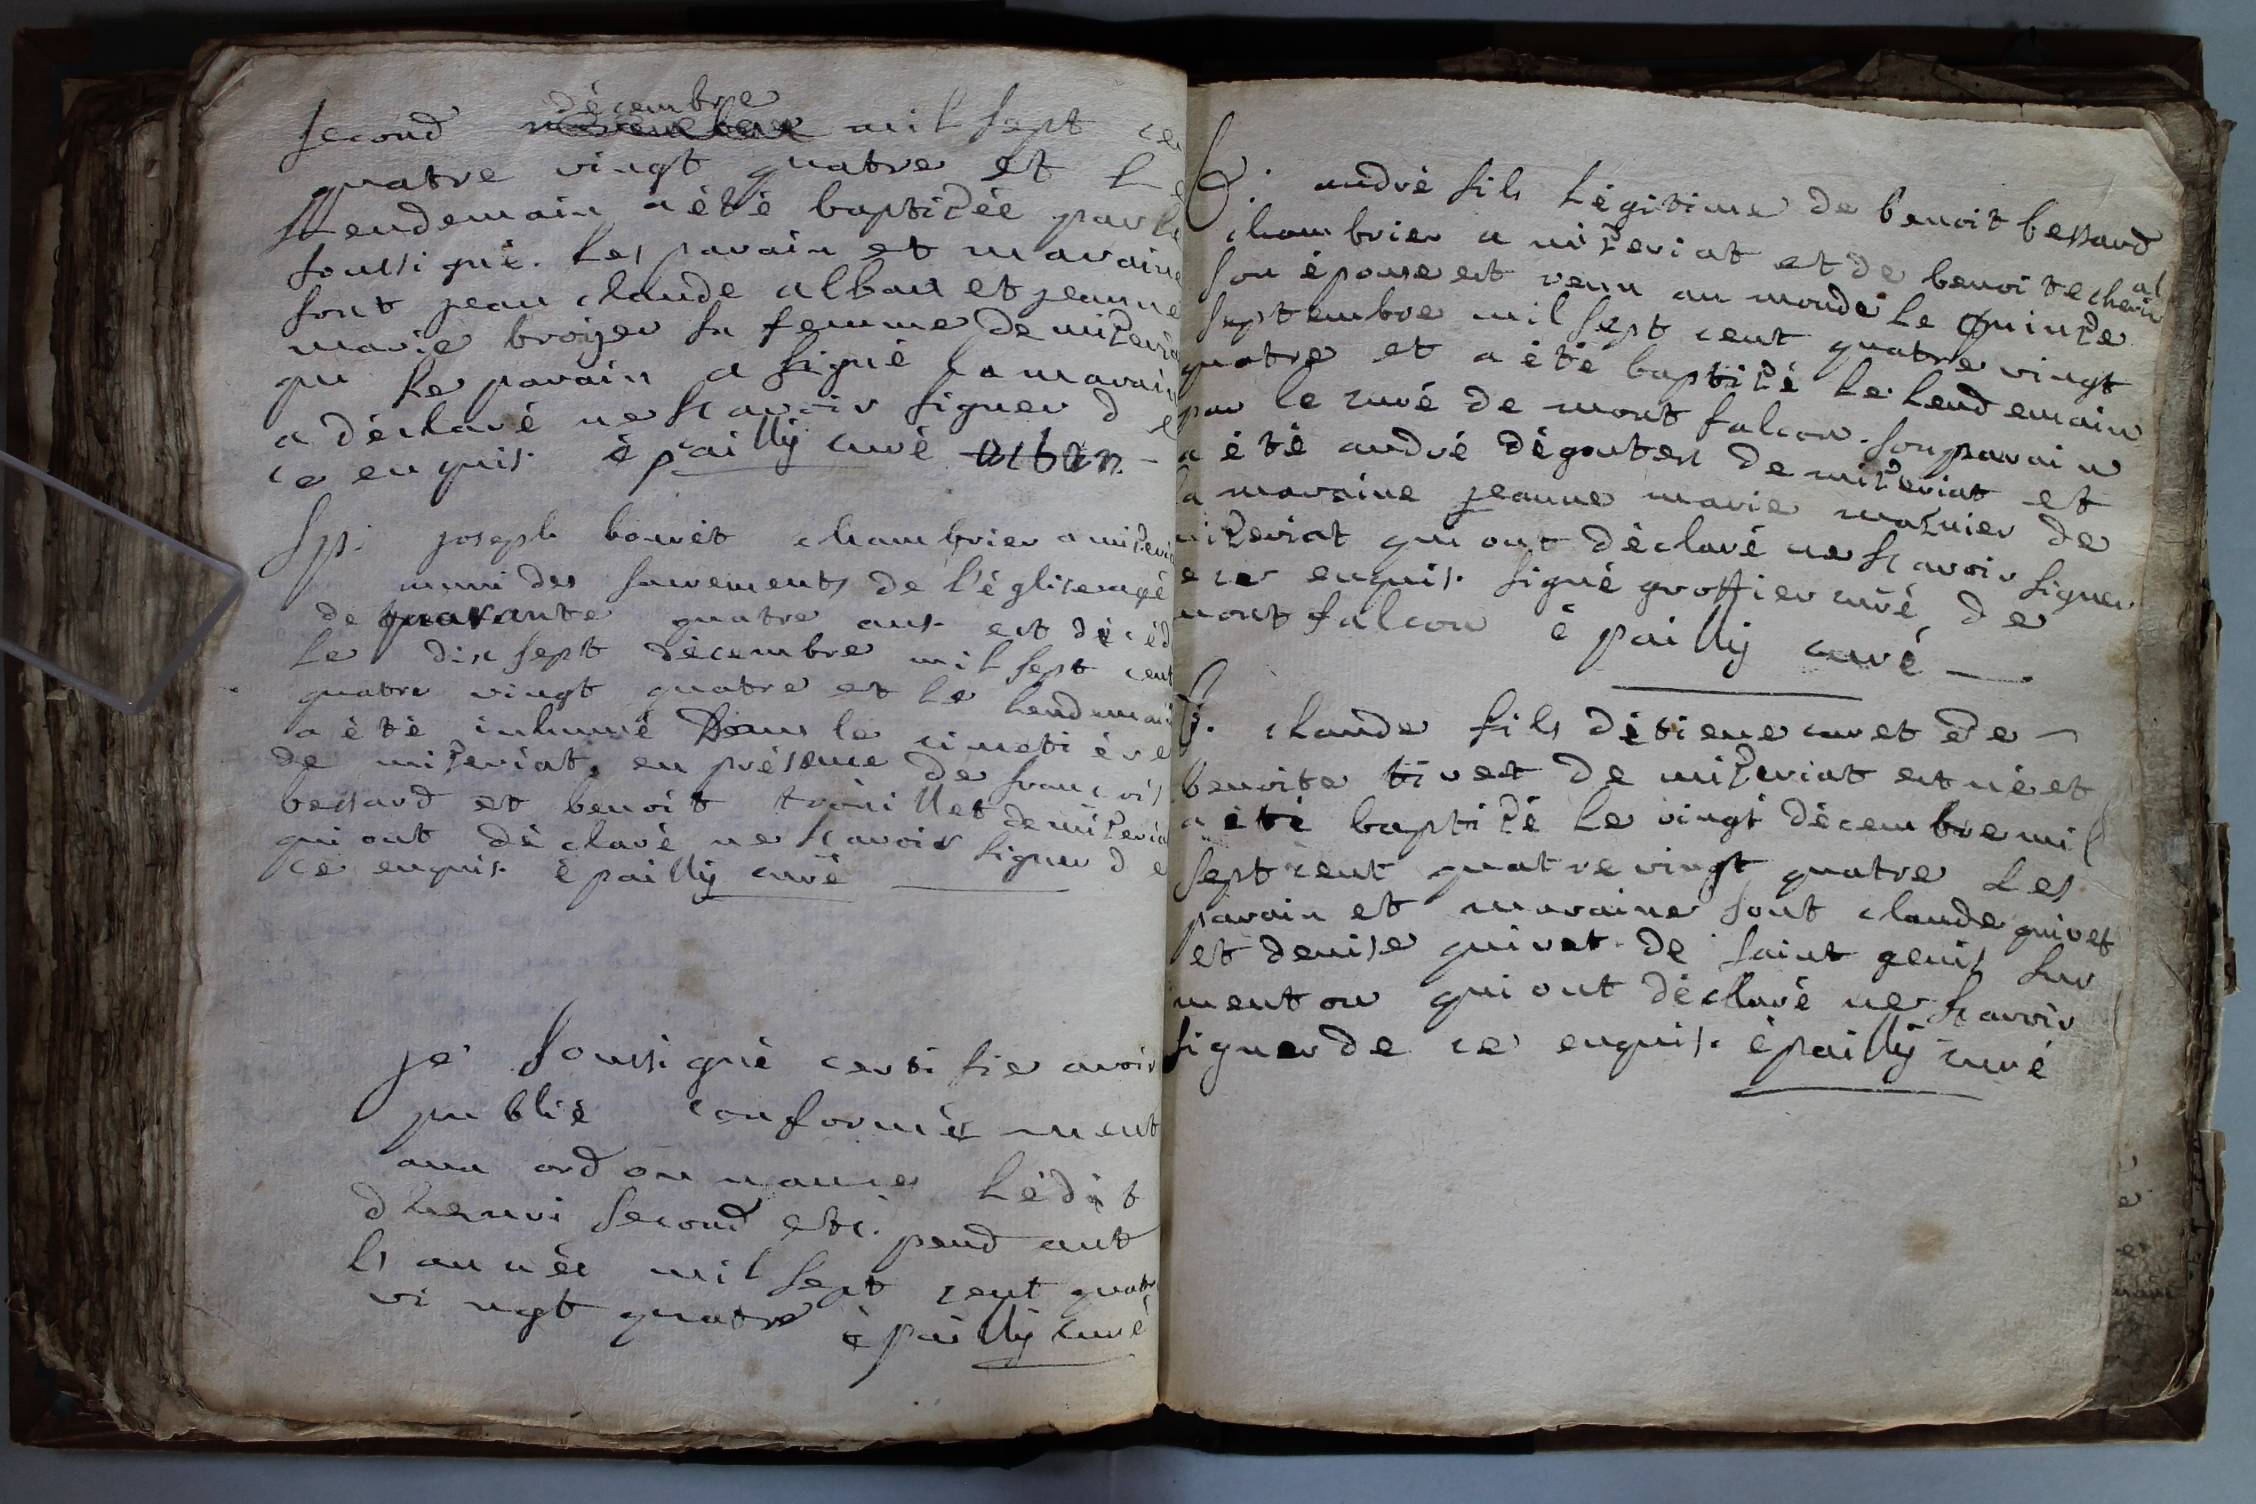 décembre
second novembre mil sept ce
quatre vingt quatre et le
lendemain a été baptisée par le
soussigné. les parain et maraine
sont jean claude alban et jeanne
marie broyer sa femme de miseria
qu le parain a signé la marain
a déclaré ne scavoir signer d e
ce enquis. épailly curé alban
Sp. joseph bouvet chambrier a miseria
muni des sacrements de l'église agé
de quarante quatre ans. est décéd
le dix sept décembre mil sept cent
quatre vingt quatre et le lendemain
a été inhumé dans le cimetière
de miseriat, en présence de francois
bessard et benoit trouillet de miseria
qui ont déclaré ne scavoir signer d e
ce enquis. épailly curé
je soussigné certifie avoir
publié conformément
aux ordonnance l'édit
d'henri second etc. pendant
ls année mil sept cent quatre
vingt quatre épailly curé
B. andré fils légitime de benoit bessard
chambrier a miseriat et de benoite cheri
al
son épouse est venu au monde le quinze
septembre mil sept cent quatre vingt
quatre et a été baptisé le lendemain
par le curé de montfalcon. son parain
a été andré dégoutes de miseriat et
la maraine jeanne marie masuier de
miseriat qui ont déclaré ne scavoir signer
e ce enquis. signé groffier curé de
montfalcon épailly curé
B. claude fils détiene curet e de
benoite tivet de miseriat est né et
a été baptisé le vingt décembre mil
sept cent quatre vingt quatre les
parain et maraine sont claude guivet
et denise guivet de saint genis sur
menton qui ont déclaré ne scavoir
signer de ce enquis. épailly curé